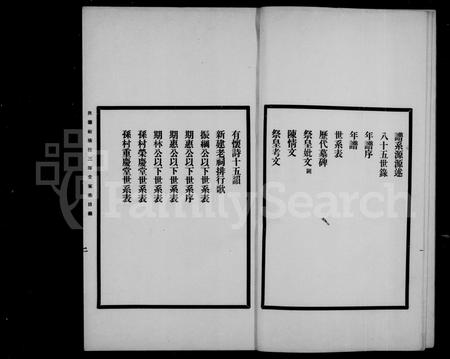 譜系源源述
八十五世錄
年譜序
年譜
世系表
歷代墓碑
祭皇妣文
陳情文
祭皇考文
有懷詩十五韻
新建老祠排行歌
振綱公以下世系表
期惠公以下世系序
期惠公以下世系表
期林公以下世系表
孫村榮慶堂世系表
孫村重慶堂世系表
FamilySearch